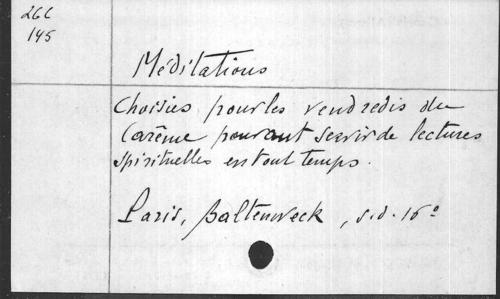 266
145
Méditations
Choisies pour les vendredis du
Carême pouvant servir de lectures
spirituelles en tout temps.
Paris, Baltenweck, s.d. 16°